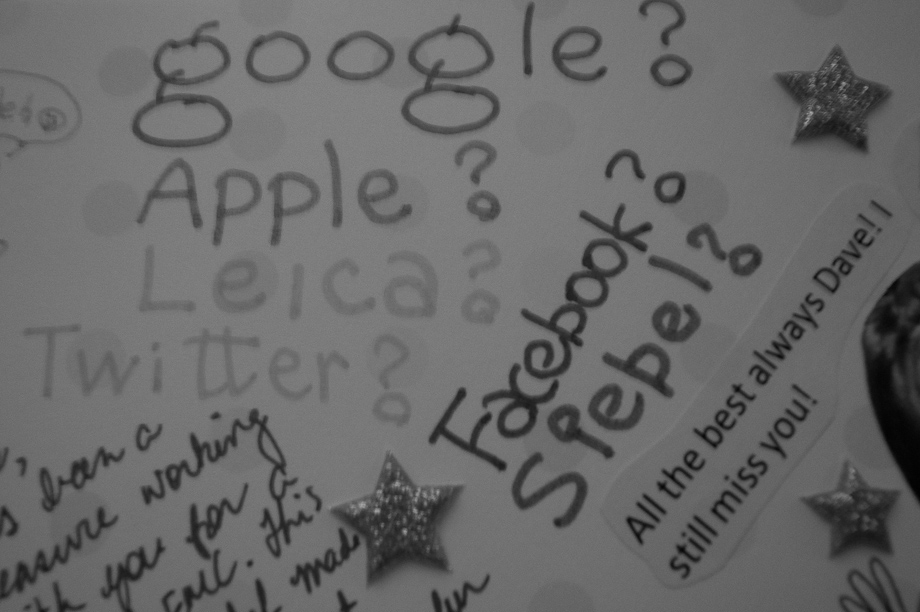 google?
Apple?
Leica?
Twitter?
Facebook?
Siebel?
All the best always Dave!!
still miss you!
been a
working
you for a
This
made